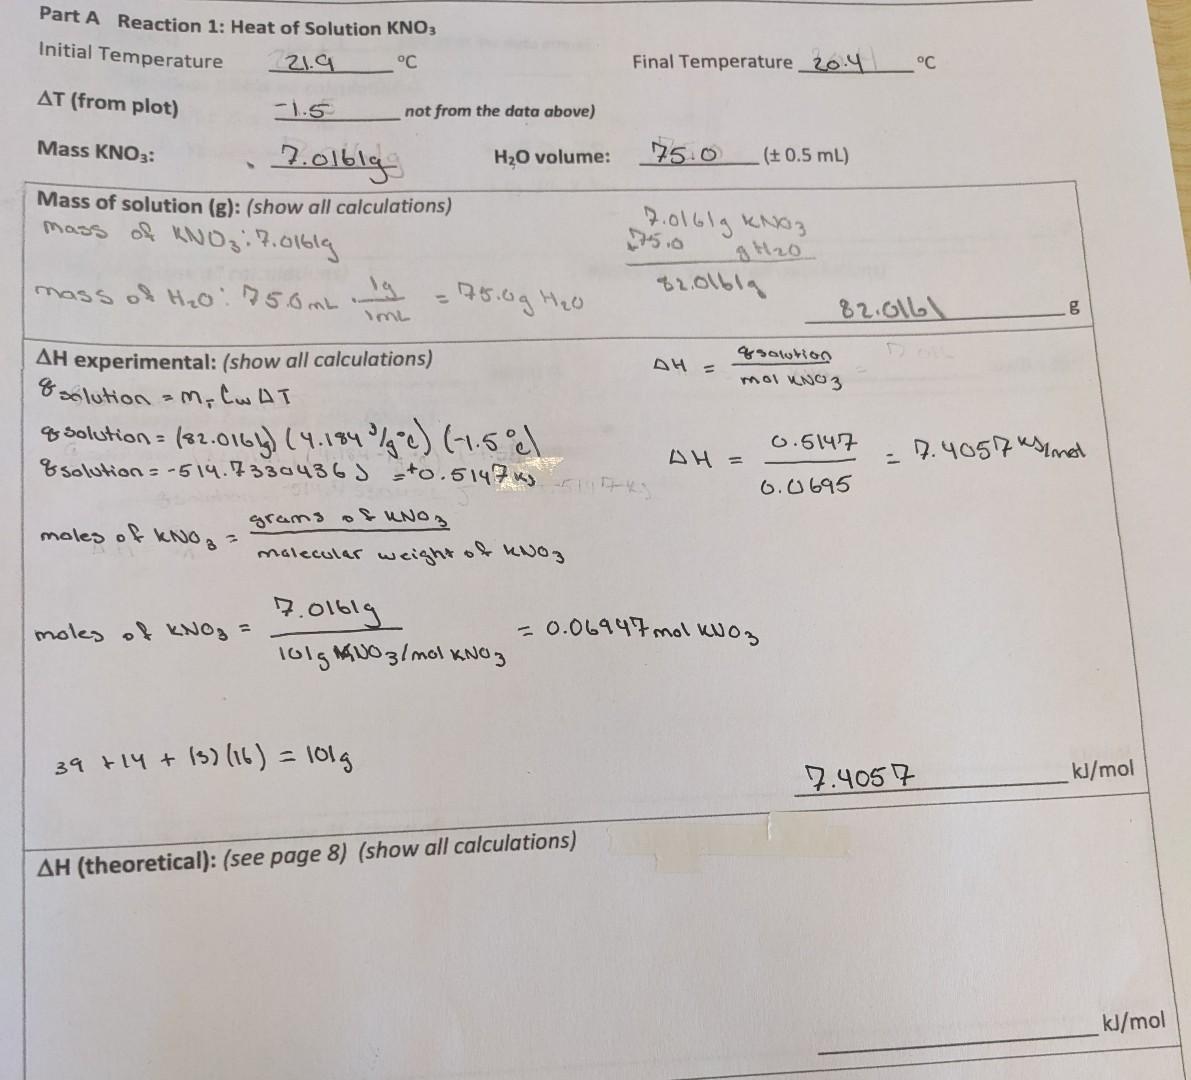 Part A Reaction 1: Heat of Solution KNO₃
Initial Temperature 21.9 °C Final Temperature 20.4 °C
ΔT (from plot) -1.5 not from the data above)
Mass KNO₃: 7.0161g H₂O volume: 75.0 (± 0.5 mL)
Mass of solution (g): (show all calculations)
mass of KNO₃: 7.0161g
mass of H₂O: 75.0mL · 1g/1mL = 75.0g H₂O
7.0161g KNO₃
+75.0 g H₂O
82.0161g
82.0161 g
ΔH experimental: (show all calculations)
q solution = m_T C_w ΔT
q solution = (82.0161g) (4.184 J/g°C) (-1.5°C)
q solution = -514.7330436 J = +0.5147 kJ
ΔH = q solution / mol KNO₃
ΔH = 0.5147 / 0.0695 = 7.4057 kJ/mol
moles of KNO₃ = grams of KNO₃ / molecular weight of KNO₃
moles of KNO₃ = 7.0161g / 101g KNO₃/mol KNO₃ = 0.06947 mol KNO₃
39 + 14 + (3)(16) = 101g
7.4057 kJ/mol
ΔH (theoretical): (see page 8) (show all calculations)
kJ/mol